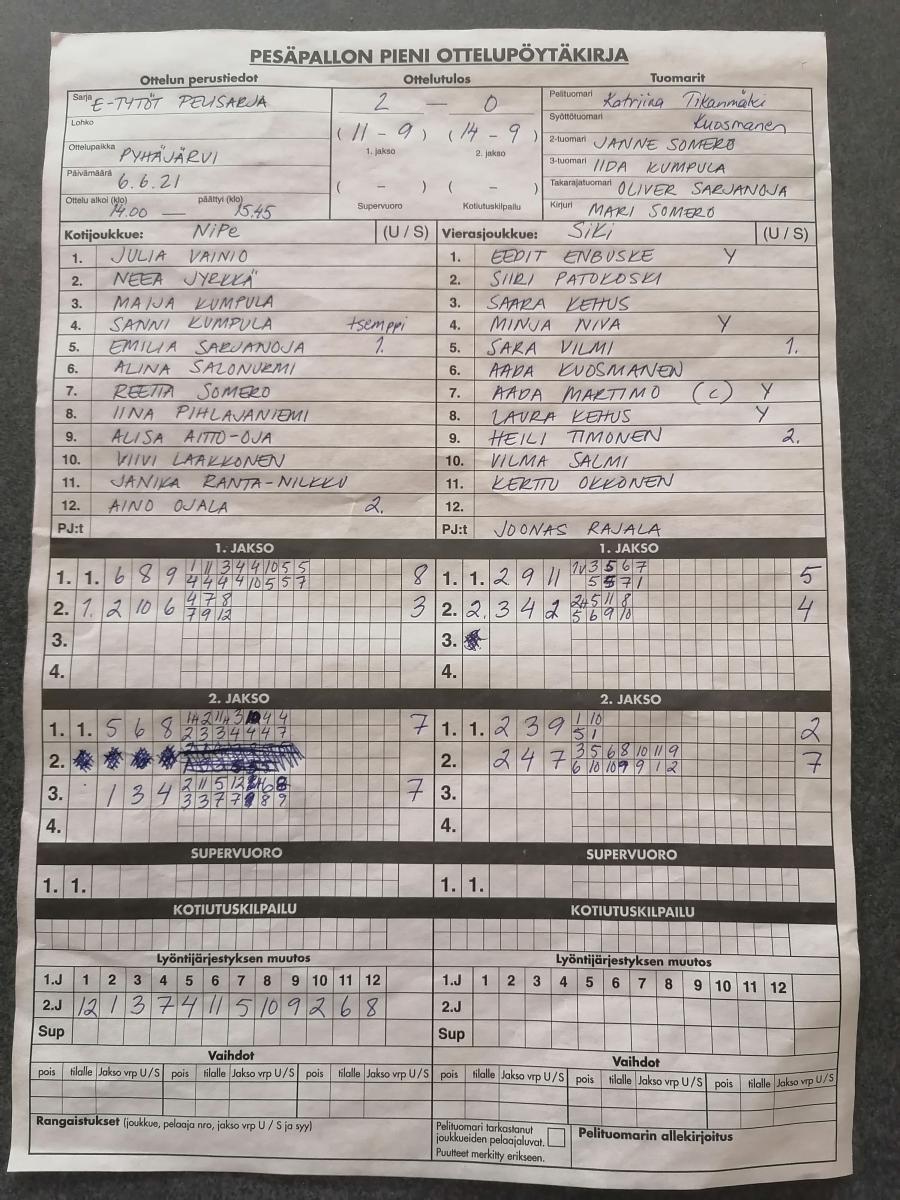 PESÄPALLON PIENI OTTELUPÖYTÄKIRJA
Ottelun perustiedot Ottelutulos Tuomarit
Sarja E-TYTÖT PELISARJA
Lohko
Ottelupaikka PYHÄJÄRVI
Päivämäärä 6.6.21
Ottelu alkoi (klo) päättyi (klo)
14.00 — 15.45
2 — 0
(11 - 9) (14 - 9)
1. jakso 2. jakso
( - ) ( - )
Supervuoro Kotiutuskilpailu
Pelituomari Katriina Tikanmäki
Syöttötuomari Kuosmanen
2-tuomari JANNE SOMERO
3-tuomari IIDA KUMPULA
Takarajatuomari OLIVER SARJANOJA
Kirjuri MARI SOMERO
Kotijoukkue: NiPe (U / S)
1. JULIA VAINIO
2. NEEA JYRKKÄ
3. MAIJA KUMPULA
4. SANNI KUMPULA tsemppi
5. EMILIA SARJANOJA 1.
6. ALINA SALONURMI
7. REETTA SOMERO
8. IINA PIHLAJANIEMI
9. ALISA AITTO-OJA
10. VIIVI LAAKKONEN
11. JANIKA RANTA-NILKKU
12. AINO OJALA 2.
PJ:t
Vierasjoukkue: SiKi (U / S)
1. EEDIT ENBUSKE Y
2. SIIRI PATOKOSKI
3. SAARA KEHUS
4. MINJA NIVA Y
5. SARA VILMI 1.
6. AADA KUOSMANEN
7. AADA MARTIMO (C) Y
8. LAURA KEHUS Y
9. HEILI TIMONEN 2.
10. VILMA SALMI
11. KERTTU OKKONEN
12.
PJ:t JOONAS RAJALA
1. JAKSO
1. 1. 6 8 9 1 11 3 4 4 10 5 5 8
4 4 4 4 10 5 5 7
2. 1. 2 10 6 4 7 8 3
7 9 12
3.
4.
1. JAKSO
1. 1. 2 9 11 3 5 6 7 5
5 5 7 1
2. 2. 3 4 2 5 11 8 4
5 6 9 10
3.
4.
2. JAKSO
1. 1. 5 6 8 7
2 3 3 4 4 4 4 7
2.
3. 1 3 4 2 11 5 12 7
3 3 7 7 8 9
4.
2. JAKSO
1. 1. 2 3 9 1 10 2
5 1
2. 2 4 7 3 5 6 8 10 11 9 7
6 10 10 9 9 1 2
3.
4.
SUPERVUORO
1. 1.
SUPERVUORO
1. 1.
KOTIUTUSKILPAILU
KOTIUTUSKILPAILU
Lyöntijärjestyksen muutos
1.J 1 2 3 4 5 6 7 8 9 10 11 12
2.J 12 1 3 7 4 11 5 10 9 2 6 8
Sup
Lyöntijärjestyksen muutos
1.J 1 2 3 4 5 6 7 8 9 10 11 12
2.J
Sup
Vaihdot
pois tilalle Jakso vrp U / S pois tilalle Jakso vrp U / S pois tilalle Jakso vrp U / S
Vaihdot
pois tilalle Jakso vrp U / S pois tilalle Jakso vrp U / S pois tilalle Jakso vrp U / S
Rangaistukset (joukkue, pelaaja nro, jakso vrp U / S ja syy)
Pelituomari tarkastanut
joukkueiden pelaajaluvat.
Puutteet merkitty erikseen.
Pelituomarin allekirjoitus